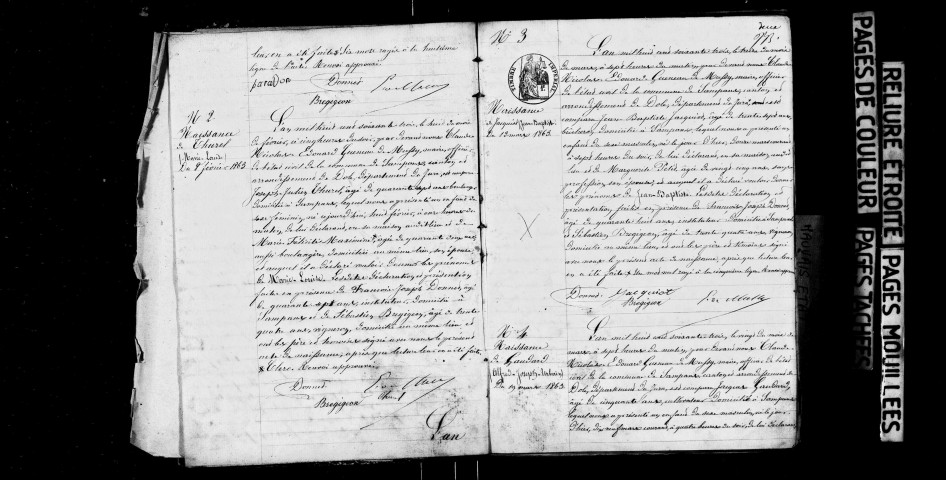 lecture en a été faite. Six mots rayés à la huitième
ligne de l'acte Renvoi approuvé
paradon
Donnet
Bregigeon
N° 2
Naissance
de Thurel
Marie Louise
Du 8 février 1863
L'an mil huit cent soixante trois, le huit du mois
de février, à cinq heures du soir, par devant nous Claude
Nicolas Edouard Guenau de Mussy, maire, officier
de l'état civil de la commune de Sampans, canton et
arrondissement de Dole, département du Jura, est comparu
Joseph Julien Thurel, âgé de quarante ans boulanger,
domicilié à Sampans, lequel nous a présenté un enfant du
sexe féminin, né aujourd'hui, huit février, à heures du
matin, de lui déclarant, en sa maison, et de
Marie Félicité âgée de quarante cinq ans,
aussi boulangère, domiciliée au même lieu, son épouse
et auquel il a déclaré vouloir donner les prénoms
de Marie Louise. Lesdites déclaration et présentation
faites en présence de François Joseph Donnet, âgé
de quarante sept ans, instituteur, domicilié à
Sampans et de Sébastien Bregigeon, âgé de trente
quatre ans, vigneron, domicilié au même lieu et
ont les père et témoins signé avec nous le présent
acte de naissance, après que lecture leur en a été faite
Renvoi approuvé
Donnet
Bregigeon
L'an
N° 3
TIMBRE IMPERIAL
Naissance
de Jacquiot Jean Baptiste
Du 12 mars 1863
L'an mil huit cent soixante trois, le treize du mois
de mars, à sept heures du matin, par devant nous Claude
Nicolas Edouard Guenau de Mussy, maire, officier
de l'état civil de la commune de Sampans, canton et
arrondissement de Dole, département du Jura, est
comparu Jean Baptiste Jacquiot, âgé de trente sept ans,
domicilié à Sampans lequel nous a présenté un
enfant du sexe masculin, né le jour d'hier, douze mars courant
à sept heures du soir, de lui déclarant, en sa maison,
et de Marguerite Petit, âgée de vingt cinq ans, sans
profession, son épouse, et auquel il a déclaré vouloir donner
les prénoms de Jean-Baptiste. Lesdites déclaration et
présentation faites en présence de François Joseph Donnet,
âgé de quarante huit ans instituteur domicilié à Sampans
et Sébastien Bregigeon, âgé de trente quatre ans vigneron,
domicilié au même lieu, et ont les père et témoins signé
avec nous le présent acte de naissance, après que lecture leur
en a été faite. Un mot rayé à la cinquième ligne. Renvoi approuvé
Donnet
Jacquiot
Bregigeon
N° 4
Naissance
de Gaudard
Alfred Joseph Antoine
Du 19 mars 1863
L'an mil huit cent soixante trois, le vingt du mois de
mars, à sept heures du matin, par devant nous Claude
Nicolas Edouard Guenau de Mussy maire, officier de l'état
civil de la commune de Sampans canton et arrondissement de
Dole, département du Jura, est comparu Jacques Gaudard,
âgé de cinquante ans, cultivateur domicilié à Sampans
lequel nous a présenté un enfant du sexe masculin, né le jour
d'hier, dix neuf mars courant, à quatre heures du soir, de lui déclarant,
PAGES DE COULEUR
PAGES TACHEES
RELIURE ETROITE
PAGES MOUILLEES